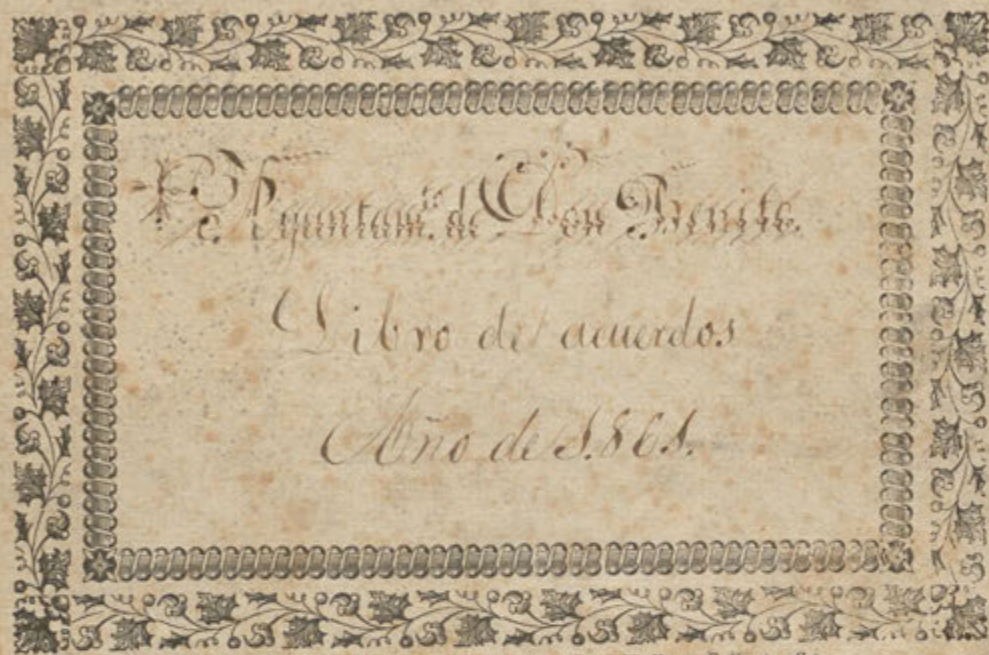 Ayuntam.to de Don Benito.
Libro de acuerdos
Año de 1.861.